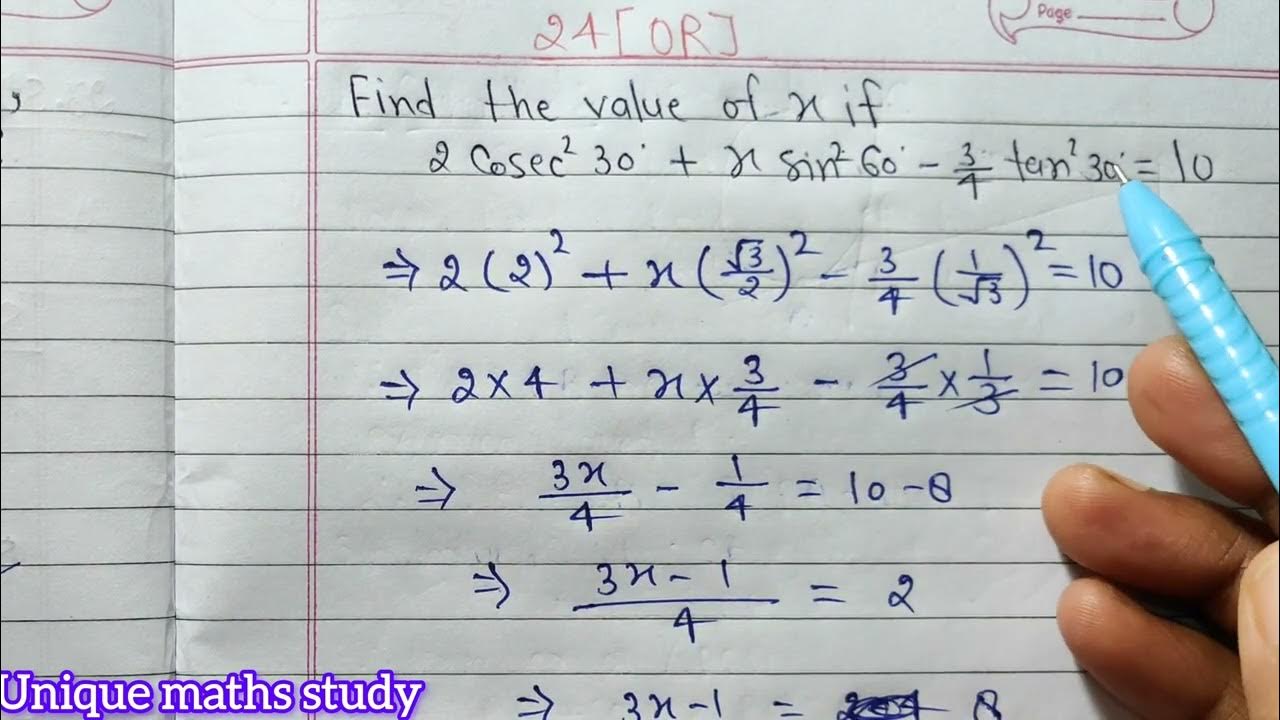 Page
24 [OR]
Find the value of x if
2 Cosec² 30° + x sin² 60° - 3/4 tan² 30° = 10
⇒ 2 (2)² + x (√3/2)² - 3/4 (1/√3)² = 10
⇒ 2 × 4 + x × 3/4 - 3/4 × 1/3 = 10
⇒ 3x/4 - 1/4 = 10 - 8
⇒ (3x - 1)/4 = 2
⇒ 3x - 1 = 8
Unique maths study